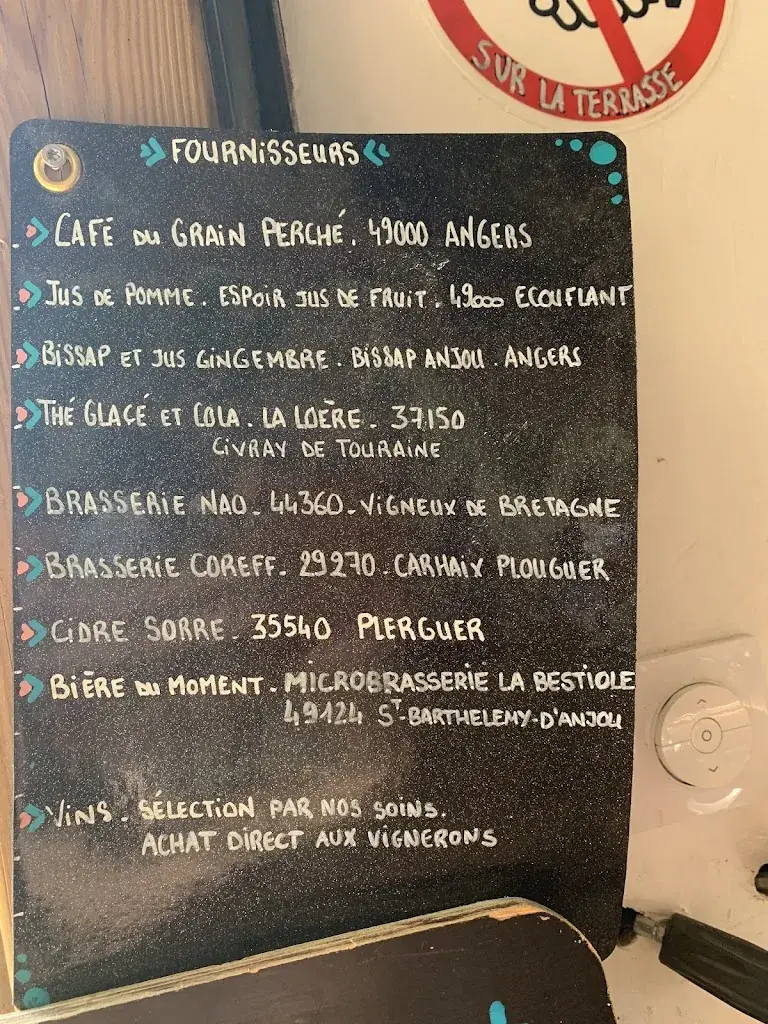 SUR LA TERRASSE
FOURNISSEURS
CAFÉ DU GRAIN PERCHÉ. 49000 ANGERS
JUS DE POMME. ESPOIR JUS DE FRUIT. 49000 ECOUFLANT
BISSAP ET JUS GINGEMBRE. BISSAP ANJOU. ANGERS
THÉ GLACÉ ET COLA. LA LOÈRE. 37150
CIVRAY DE TOURAINE
BRASSERIE NAO. 44360. VIGNEUX DE BRETAGNE
BRASSERIE COREFF. 29270. CARHAIX PLOUGUER
CIDRE SORRE. 35540 PLERGUER
BIÈRE DU MOMENT. MICROBRASSERIE LA BESTIOLE
49124 ST-BARTHELEMY-D'ANJOU
VINS. SÉLECTION PAR NOS SOINS.
ACHAT DIRECT AUX VIGNERONS